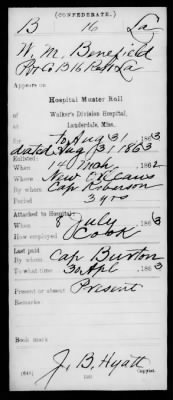 (CONFEDERATE.)
B 16 La
W. M. Benefield
Pvt Co B 16 Regt La
Appears on
Hospital Muster Roll
of Walker's Division Hospital,
Lauderdale, Miss.
to Aug 31, 1863
dated Aug 31 1863
Enlisted:
When 14 Mch, 1862
Where New Orleans
By whom Cap Roberson
Period 3 yrs
Attached to Hospital:
When 8 July, 1863
How employed Cook
Last paid:
By whom Cap Burton
To what time 30 Apl, 1863
Present or absent Present
Remarks:
Book mark:
J. B. Hyatt
Copyist.